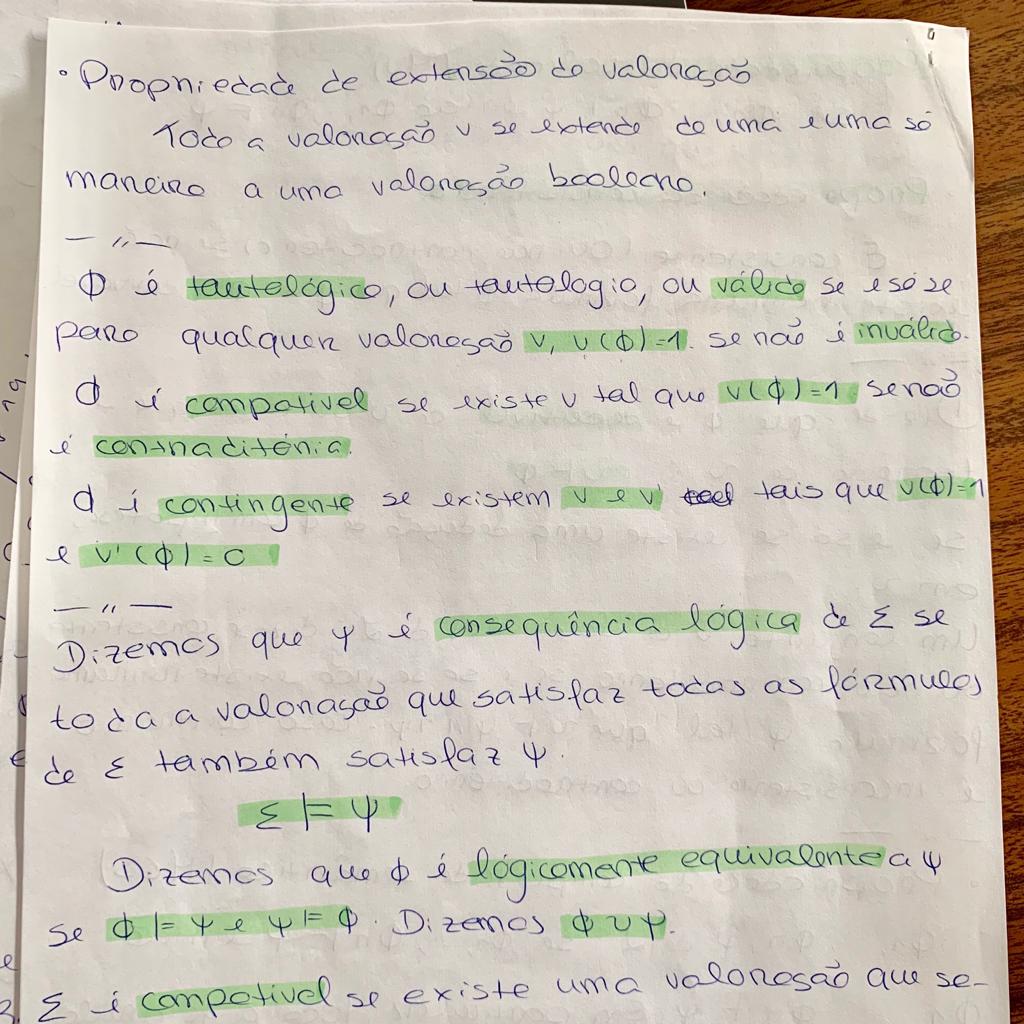 • Propriedade de extensão da valoração
Toda a valoração v se extende de uma e uma só
maneira a uma valoração booleana.
— " —
ϕ é tautológica, ou tautologia, ou válida se e só se
para qualquer valoração v, v(ϕ)=1. se não é inválida.
ϕ é compatível se existe v tal que v(ϕ)=1 se não
é contraditória.
ϕ é contingente se existem v e v' tais que v(ϕ)=1
e v'(ϕ)=0
— " —
Dizemos que ψ é consequência lógica de Σ se
toda a valoração que satisfaz todas as fórmulas
de Σ também satisfaz ψ.
Σ ⊨ ψ
Dizemos que ϕ é lógicamente equivalente a ψ
se ϕ ⊨ ψ e ψ ⊨ ϕ. Dizemos ϕ ∪ ψ.
Σ é compatível se existe uma valoração que se-